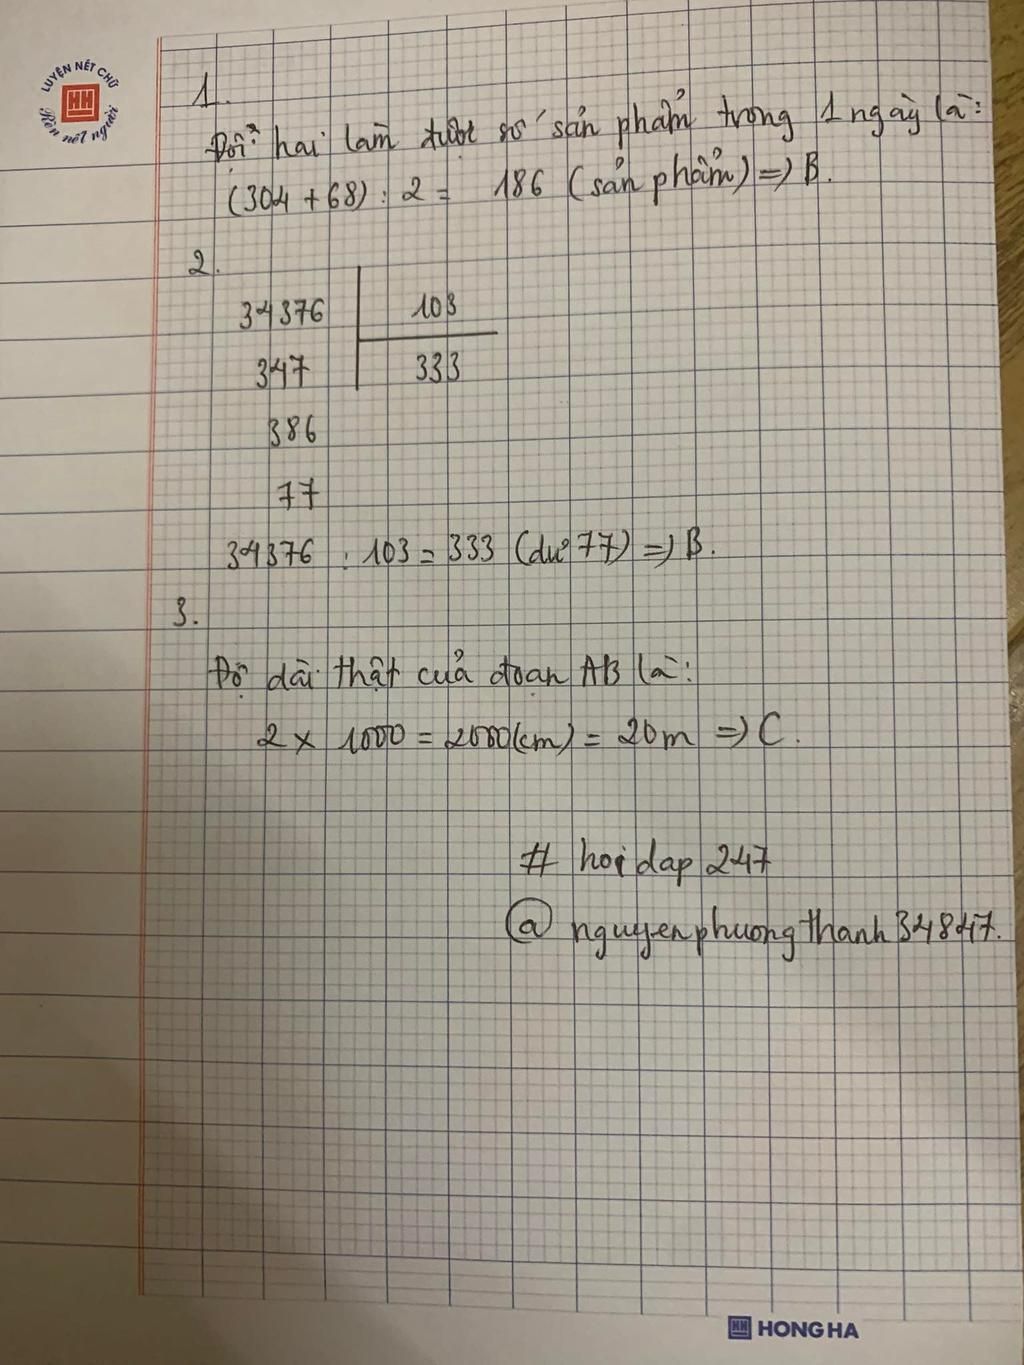 LUYỆN NÉT CHỮ
HH
Rèn nết người
1.
Đội hai làm được số sản phẩm trong 1 ngày là:
(304 + 68) : 2 = 186 (sản phẩm) => B.
2.
34376 103
347 333
386
77
34376 : 103 = 333 (dư 77) => B.
3.
Độ dài thật của đoạn AB là:
2 x 1000 = 2000(cm) = 20m => C.
# hoidap 247
@ nguyenphuongthanh34847.
HH HONG HA